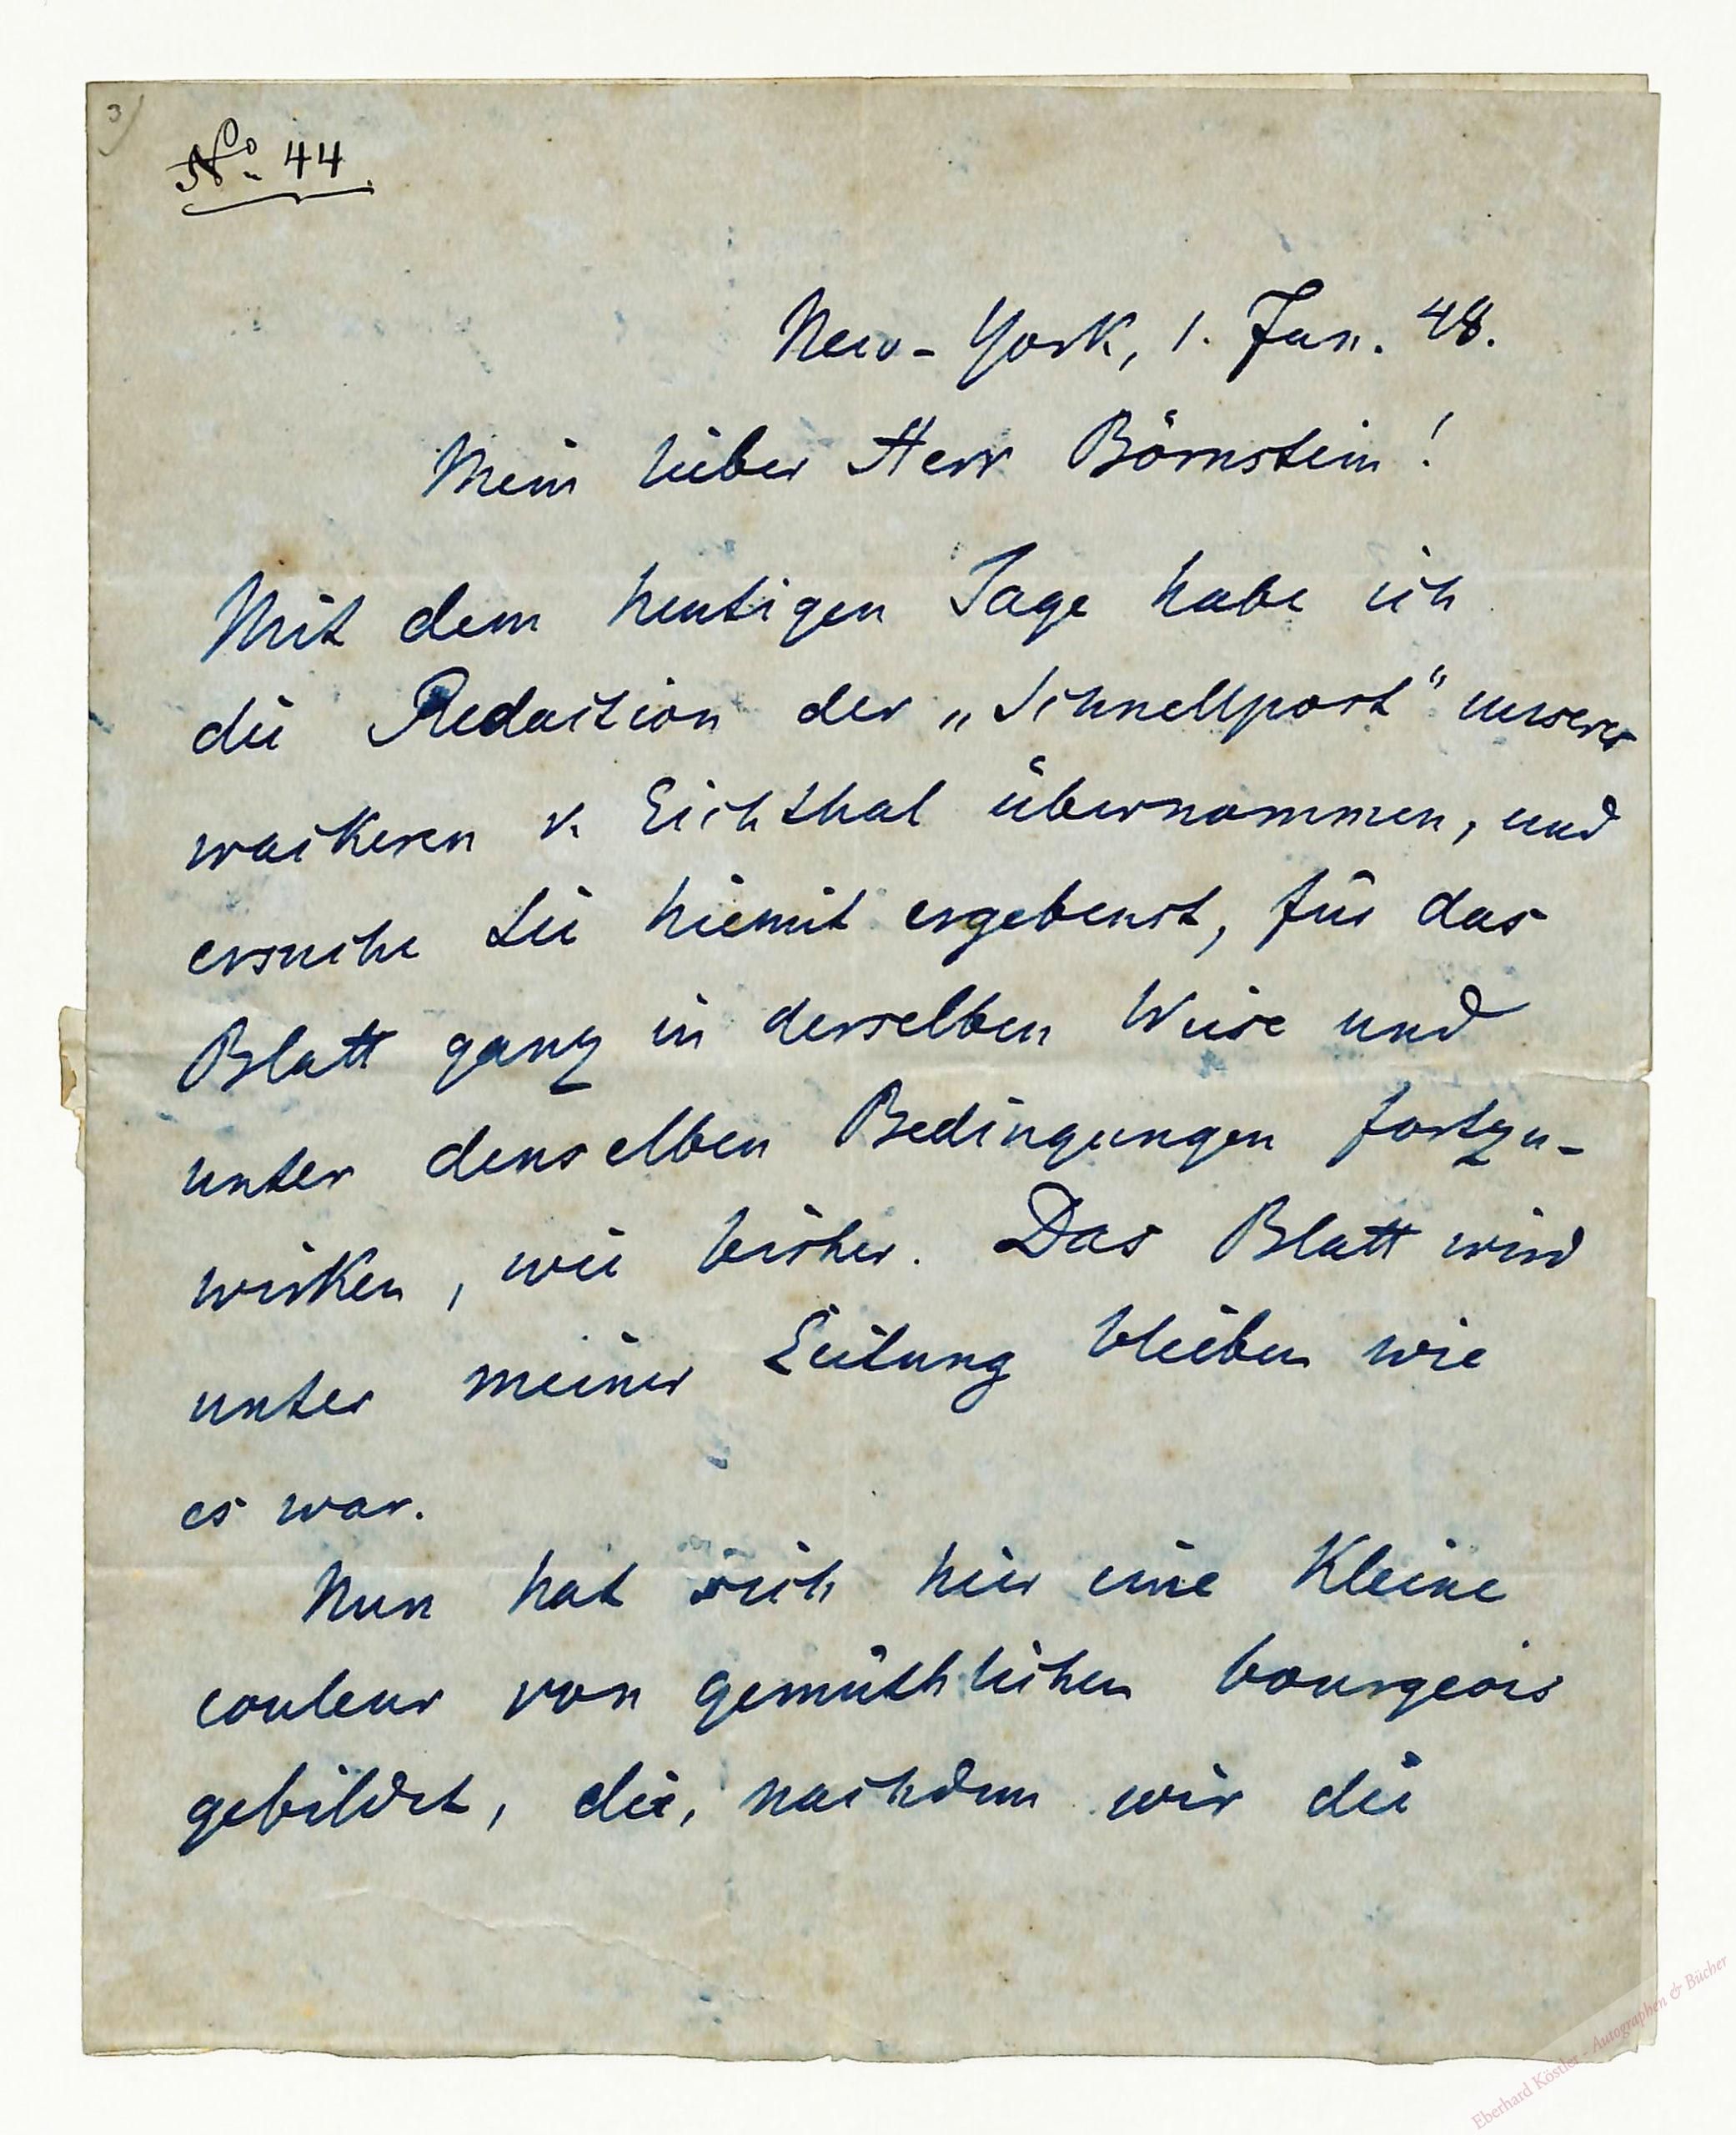 3)
No. 44.
New-York, 1. Jan. 48.
Mein lieber Herr Börnstein!
Mit dem heutigen Tage habe ich
die Redaction der „Schnellpost“ unseres
wackeren v. Eichthal übernommen, und
ersuche Sie hiemit ergebenst, für das
Blatt ganz in derselben Weise und
unter denselben Bedingungen fortzu-
wirken, wie bisher. Das Blatt wird
unter meiner Leitung bleiben wie
es war.
Nun hat sich hier eine kleine
couleur von gemüthlichen bourgeois
gebildet, die, nachdem wir die
Eberhard Köstler - Autographen & Bücher